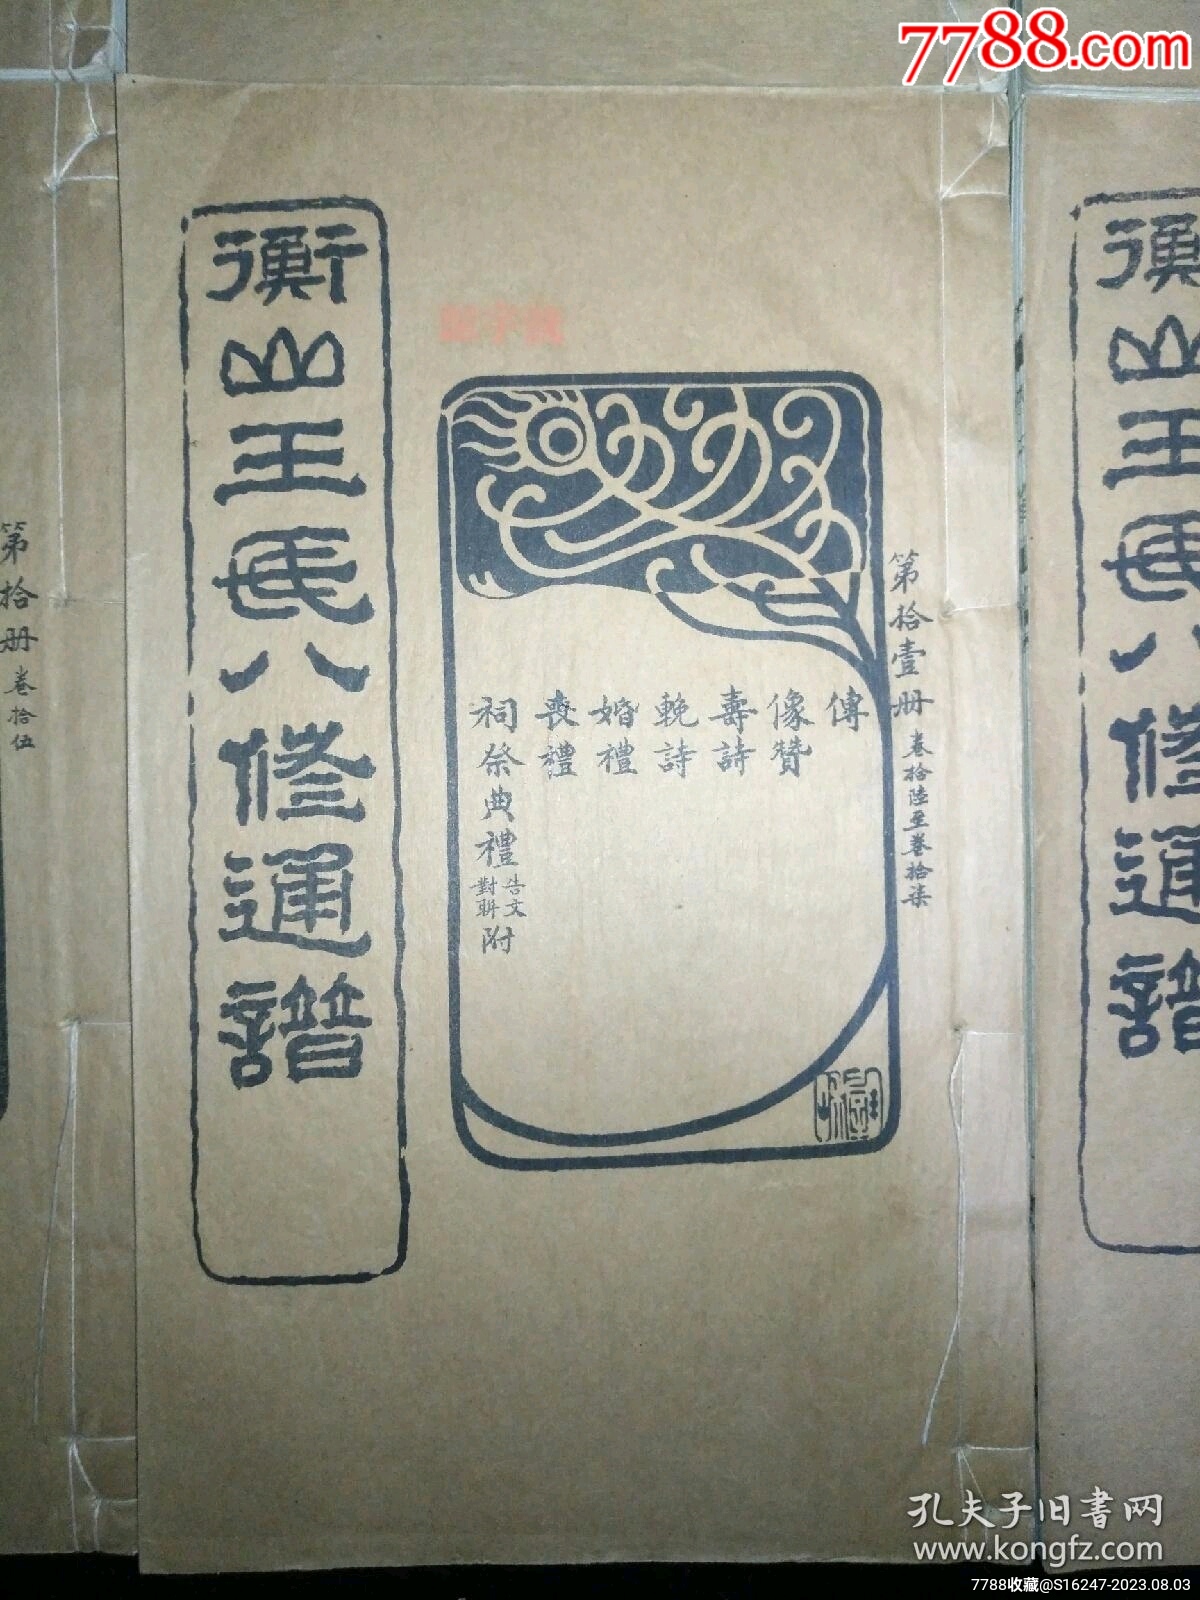 7788.com
衡山王氏八修通譜
第拾壹册 卷拾陸至卷拾柒
傳
像贊
壽詩
輓詩
婚禮
喪禮
祠祭典禮 告文對聯 附
第拾册 卷拾伍
孔夫子旧书网
www.kongfz.com
7788收藏@S16247-2023.08.03